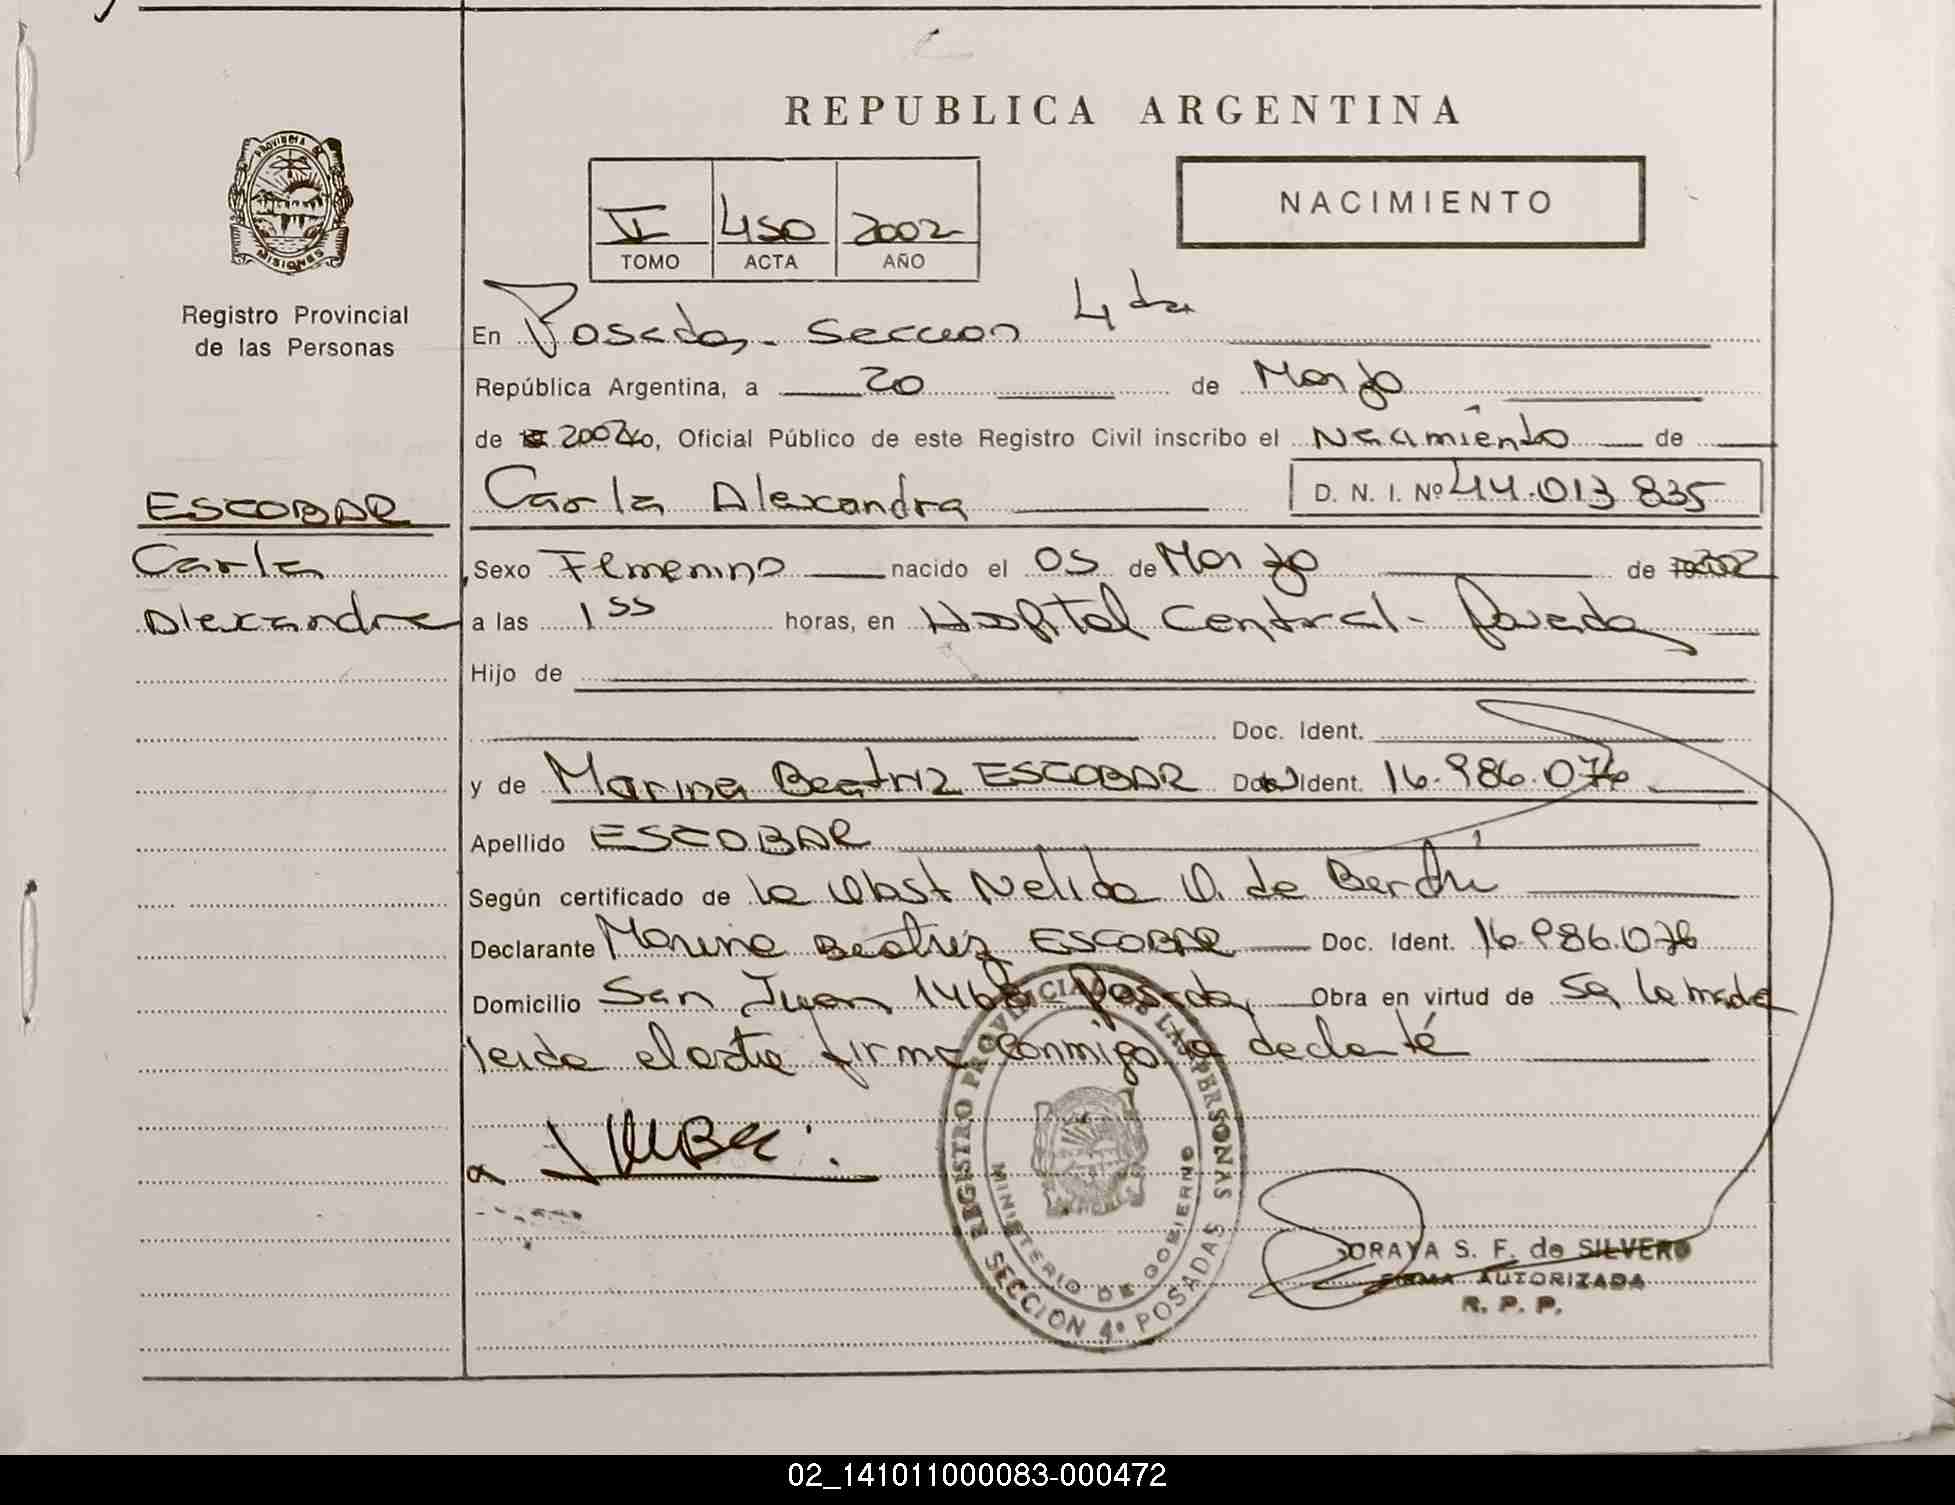 REPUBLICA ARGENTINA
PROVINCIA DE
MISIONES
V 450 2002
TOMO ACTA AÑO
NACIMIENTO
Registro Provincial
de las Personas
En Posadas - Seccion 4ta
República Argentina, a 20 de Marzo
de 2002 yo, Oficial Público de este Registro Civil inscribo el Nacimiento de
Carla Alexandra D. N. I. Nº 44.013.835
ESCOBAR
Carla
Alexandra
Sexo Femenino nacido el 05 de Marzo de 2002
a las 1 55 horas, en Hospital Central - Posadas
Hijo de
Doc. Ident.
y de Marina Beatriz ESCOBAR Doc. Ident. 16.986.076
Apellido ESCOBAR
Según certificado de la Obst Nelida O. de
Declarante Marina Beatriz ESCOBAR Doc. Ident. 16.986.076
Domicilio San Juan 1468 Posadas Obra en virtud de Sa la madre
leida el acta firma conmigo la declaté
REGISTRO PROVINCIAL DE LAS PERSONAS
MINISTERIO DE GOBIERNO
SECCION 4º POSADAS
SORAYA S. F. de SILVERO
FIRMA AUTORIZADA
R. P. P.
02_141011000083-000472